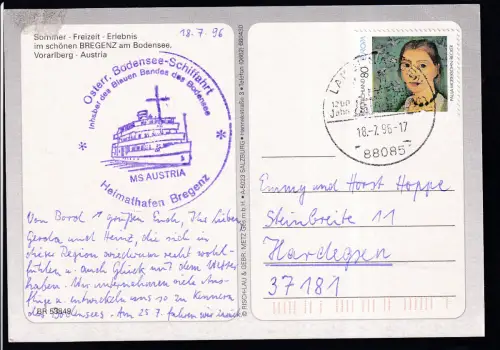 Sommer · Freizeit · Erlebnis
im schönen BREGENZ am Bodensee.
Vorarlberg · Austria
18.7.96
Österr. Bodensee-Schiffahrt
Inhaber des Blauen Bandes des Bodensee
MS AUSTRIA
Heimathafen Bregenz
Von Bord ↑ grüßen Euch, Ihr lieben
Gerda und Heinz, die sich in
dieser Region wiederum recht wohl-
fühlen u. auch Glück mit dem Wetter
haben. Wir unternehmen viele Aus-
flüge u. entwickeln uns so zu Kennern
des Bodensees. Am 25.7. fahren wir zurück
BR 53849
© RISCHLAU & GEBR. METZ Ges.m.b.H. • A-5023 SALZBURG
80
EUROPA
PAULA MODERSOHN-BECKER
1250
18.-7.96-17
88085
Emmy und Horst Hoppe
Steinbreite 11
Hardegsen
37181